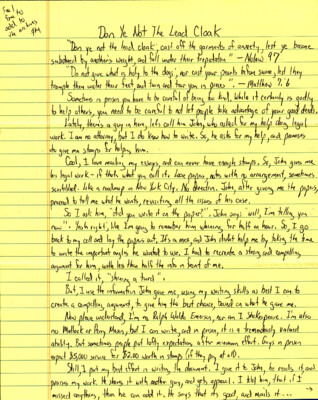 Don Ye Not The Lead Cloak
"Don ye not the lead cloak; cast off the garments of anxiety, lest ye become
burdened by another's weight, and fall under their
"Do not give what is holy to the dogs; nor cast your pearls before swine, lest they
trample them under their feet, and turn and tear you in pieces". - Matthew 7:6
Sometimes in prison you have to be careful of being too kind. While it certainly is godly
to help others, you need to be careful to not let people take advantage of your good deeds.
Lately, there's a guy in here, let's call him John, who asked for my help doing legal
work. I am no attorney, but I do know how to write. So, he asks for my help, and promises
to give me stamps for helping him.
Cool, I love mailing my essays, and can never have enough stamps. So, John gives me
his legal work - if that's what you call it, loose papers, notes with no arrangement, sometimes
scribbled like a roadmap in New York City. No direction. John, after giving me the papers,
proceeds to tell me what he wants, revisiting all the issues of his case.
So I ask him, "did you write it on the paper?" John says "well, I'm telling you
now". Yeah right, like I'm going to remember him whining for half an hour. So, I go
back to my cell and lay the papers out. It's a mess, and John didn't help me by taking the time
to write the important angles he wanted to use. I had to recreate a strong and compelling
argument for him, with less than half the info in front of me.
I called it, "shining a turd".
But, I use the information John gave me, using my writing skills as best I can to
create a compelling argument, to give him the best chance, based on what he gave me.
Now please understand, I'm no Ralph Waldo Emerson, nor am I Shakespeare. I'm also
no Matlock or Perry Mason, but I can write, and in prison, it is a tremendously valued
ability. But sometimes people put lofty expectations after minimum effort. Guys in prison
expect $5,000 service for $2.00 worth in stamps (if they pay at all).
Still, I put my best effort in writing the document. I give it to John, he reads it, and
praises my work. He shares it with another guy, and gets approval. I told him, that if I
missed anything, then he can add it. He says that it's good, and mails it...